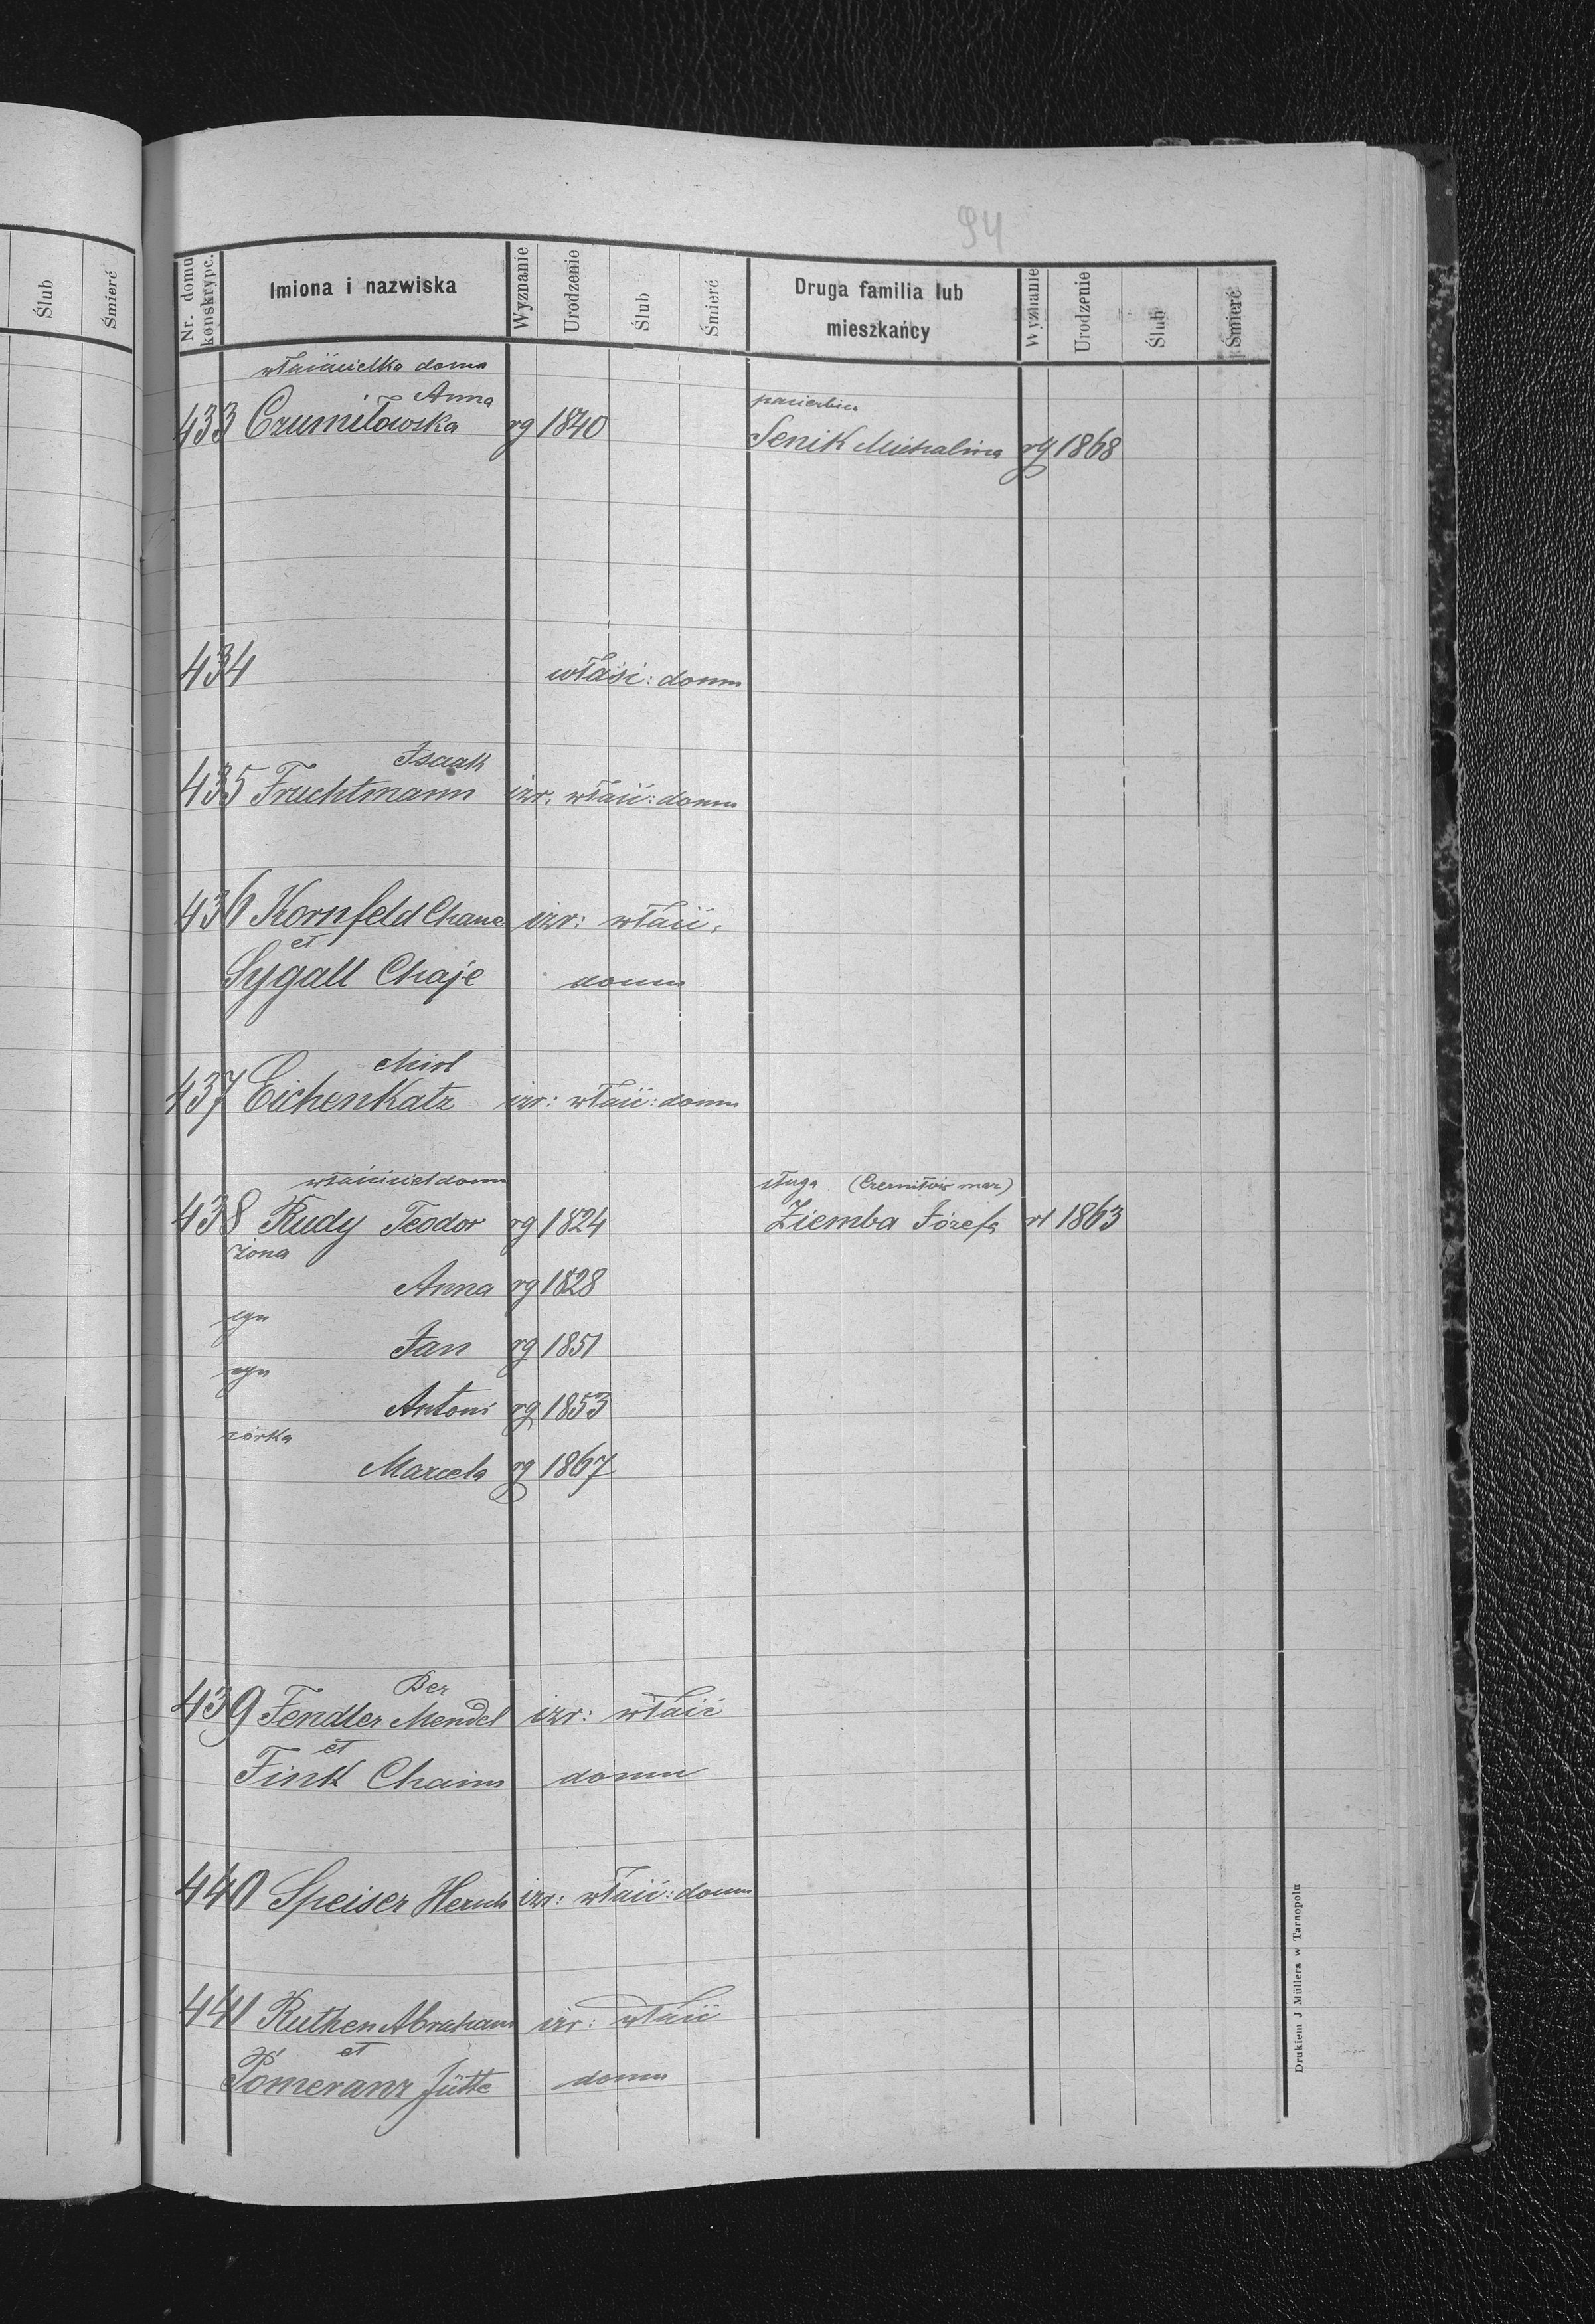 94
Ślub Śmierć
Nr. domu konskrypc. Imiona i nazwiska Wyznanie Urodzenie Ślub Śmierć Druga familia lub mieszkańcy Wyznanie Urodzenie Ślub Śmierć
właścicielka domu
Anna pasierbica
433 Czumiłowska rg 1840 Senik Michalina rg 1868
434 właśc: domu
Isaak
435 Fruchtmann izr. właśc: domu
436 Kornfeld Chane izr: właśc:
et
Sygall Chaje domu
Mirl
437 Eichenkatz izr: właśc: domu
właściciel domu sługa
438 Rudy Teodor rg 1824 Ziemba Józefa rł 1863
żona
Anna rg 1828
syn
Jan rg 1851
syn
Antoni rg 1853
córka
Marcela rg 1867
Ber
439 Fendler Mendel izr: właśc
et
Fink Chaim domu
440 Speiser Hersch izr: właśc: domu
441 Ruthen Abraham izr: właśc
et
Pomeranz Jütte domu
Drukiem J Müllera w Tarnopolu